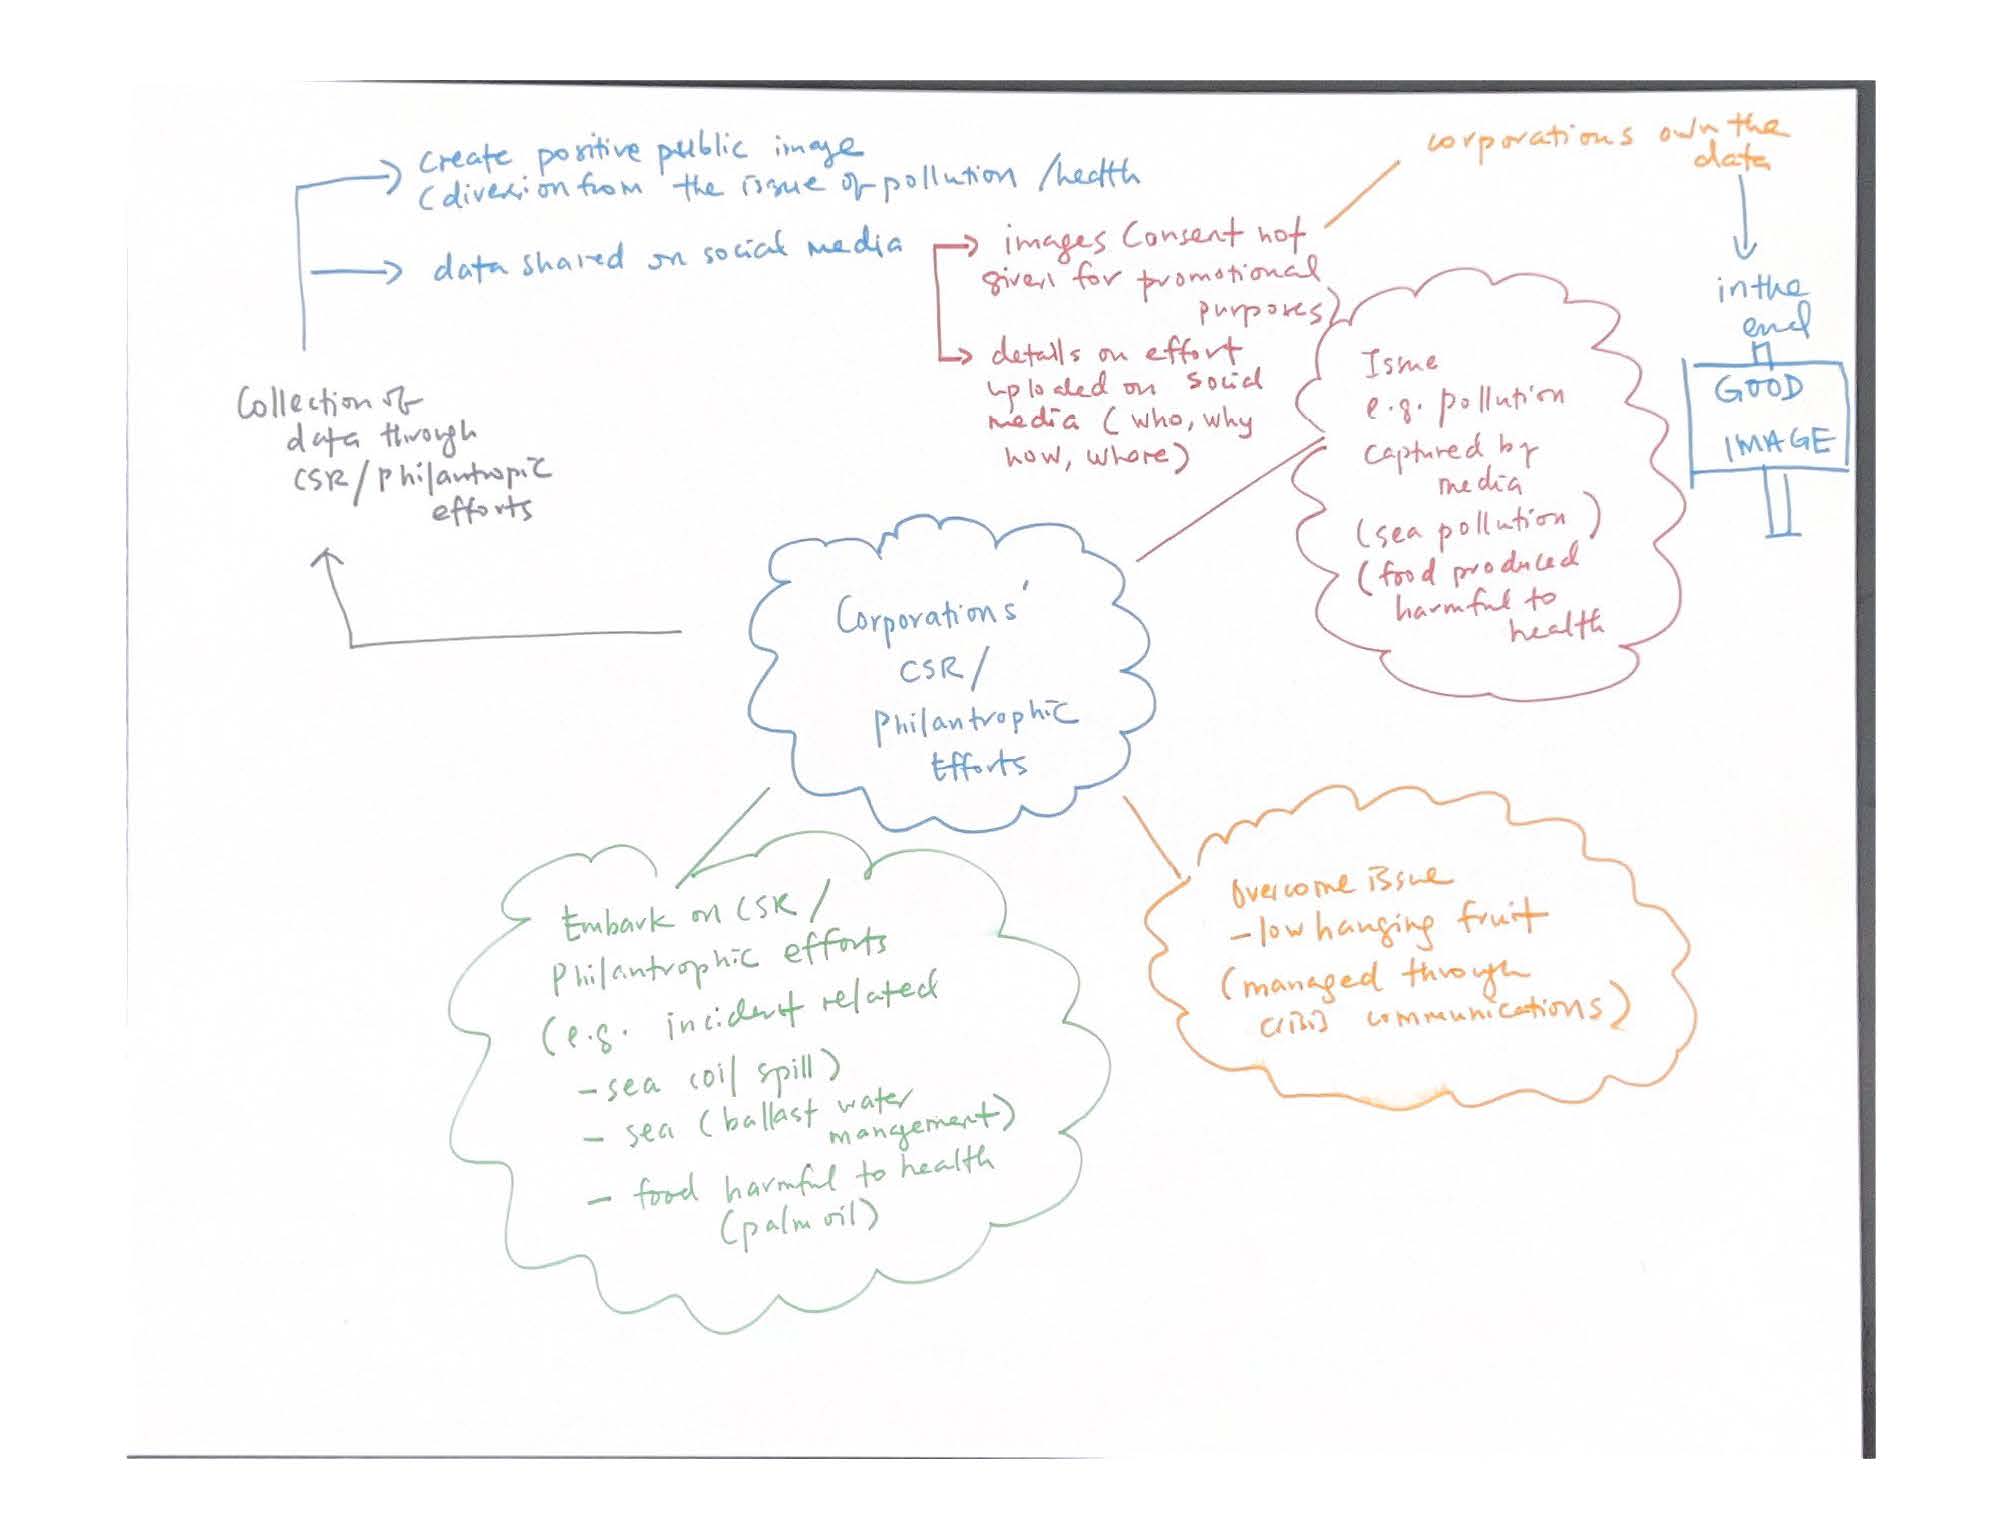 create positive public image
(diversion from the issue of pollution / health
data shared on social media
images consent not
given for promotional
purposes)
details on effort
uploaded on social
media (who, why
how, where)
corporations own the
data
in the
end
GOOD
IMAGE
Collection of
data through
CSR/Philantropic
efforts
Issue
e.g. pollution
captured by
media
(sea pollution)
(food produced
harmful to
health
Corporations'
CSR/
Philantrophic
Efforts
Embark on CSR/
Philantrophic efforts
(e.g. incident related
- sea coil spill)
- sea (ballast water
mangement)
- food harmful to health
(palm oil)
Overcome issue
- low hanging fruit
(managed through
communications)